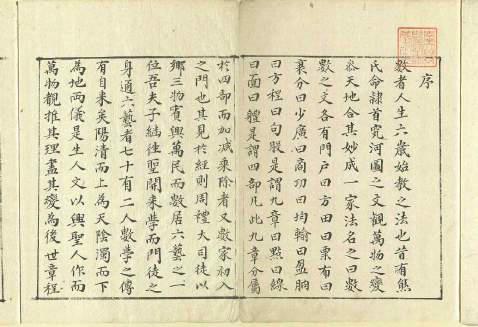 序
數者人生六歲始教之法也昔有熊
氏命隷首究河圖之文觀萬物之變
叅天地合其妙成一家法名之曰數
數之文各有門户曰方田曰粟布曰
襄分曰少廣曰商功曰均輸曰盈朒
曰方程曰句股是謂九章曰點曰線
曰面曰體是謂四部凡此九章分屬
於四部而加减乘除者又數家初入
之門也其見於經則周禮大司徒以
鄉三物賓興萬民而數居六藝之一
位吾夫子繼往聖開来學而門徒之
身通六藝者七十有二人數學之傳
有自来矣陽清而上為天陰濁而下
為地兩儀是生人文以興聖人作而
萬物覩推其理盡其變為後世章程